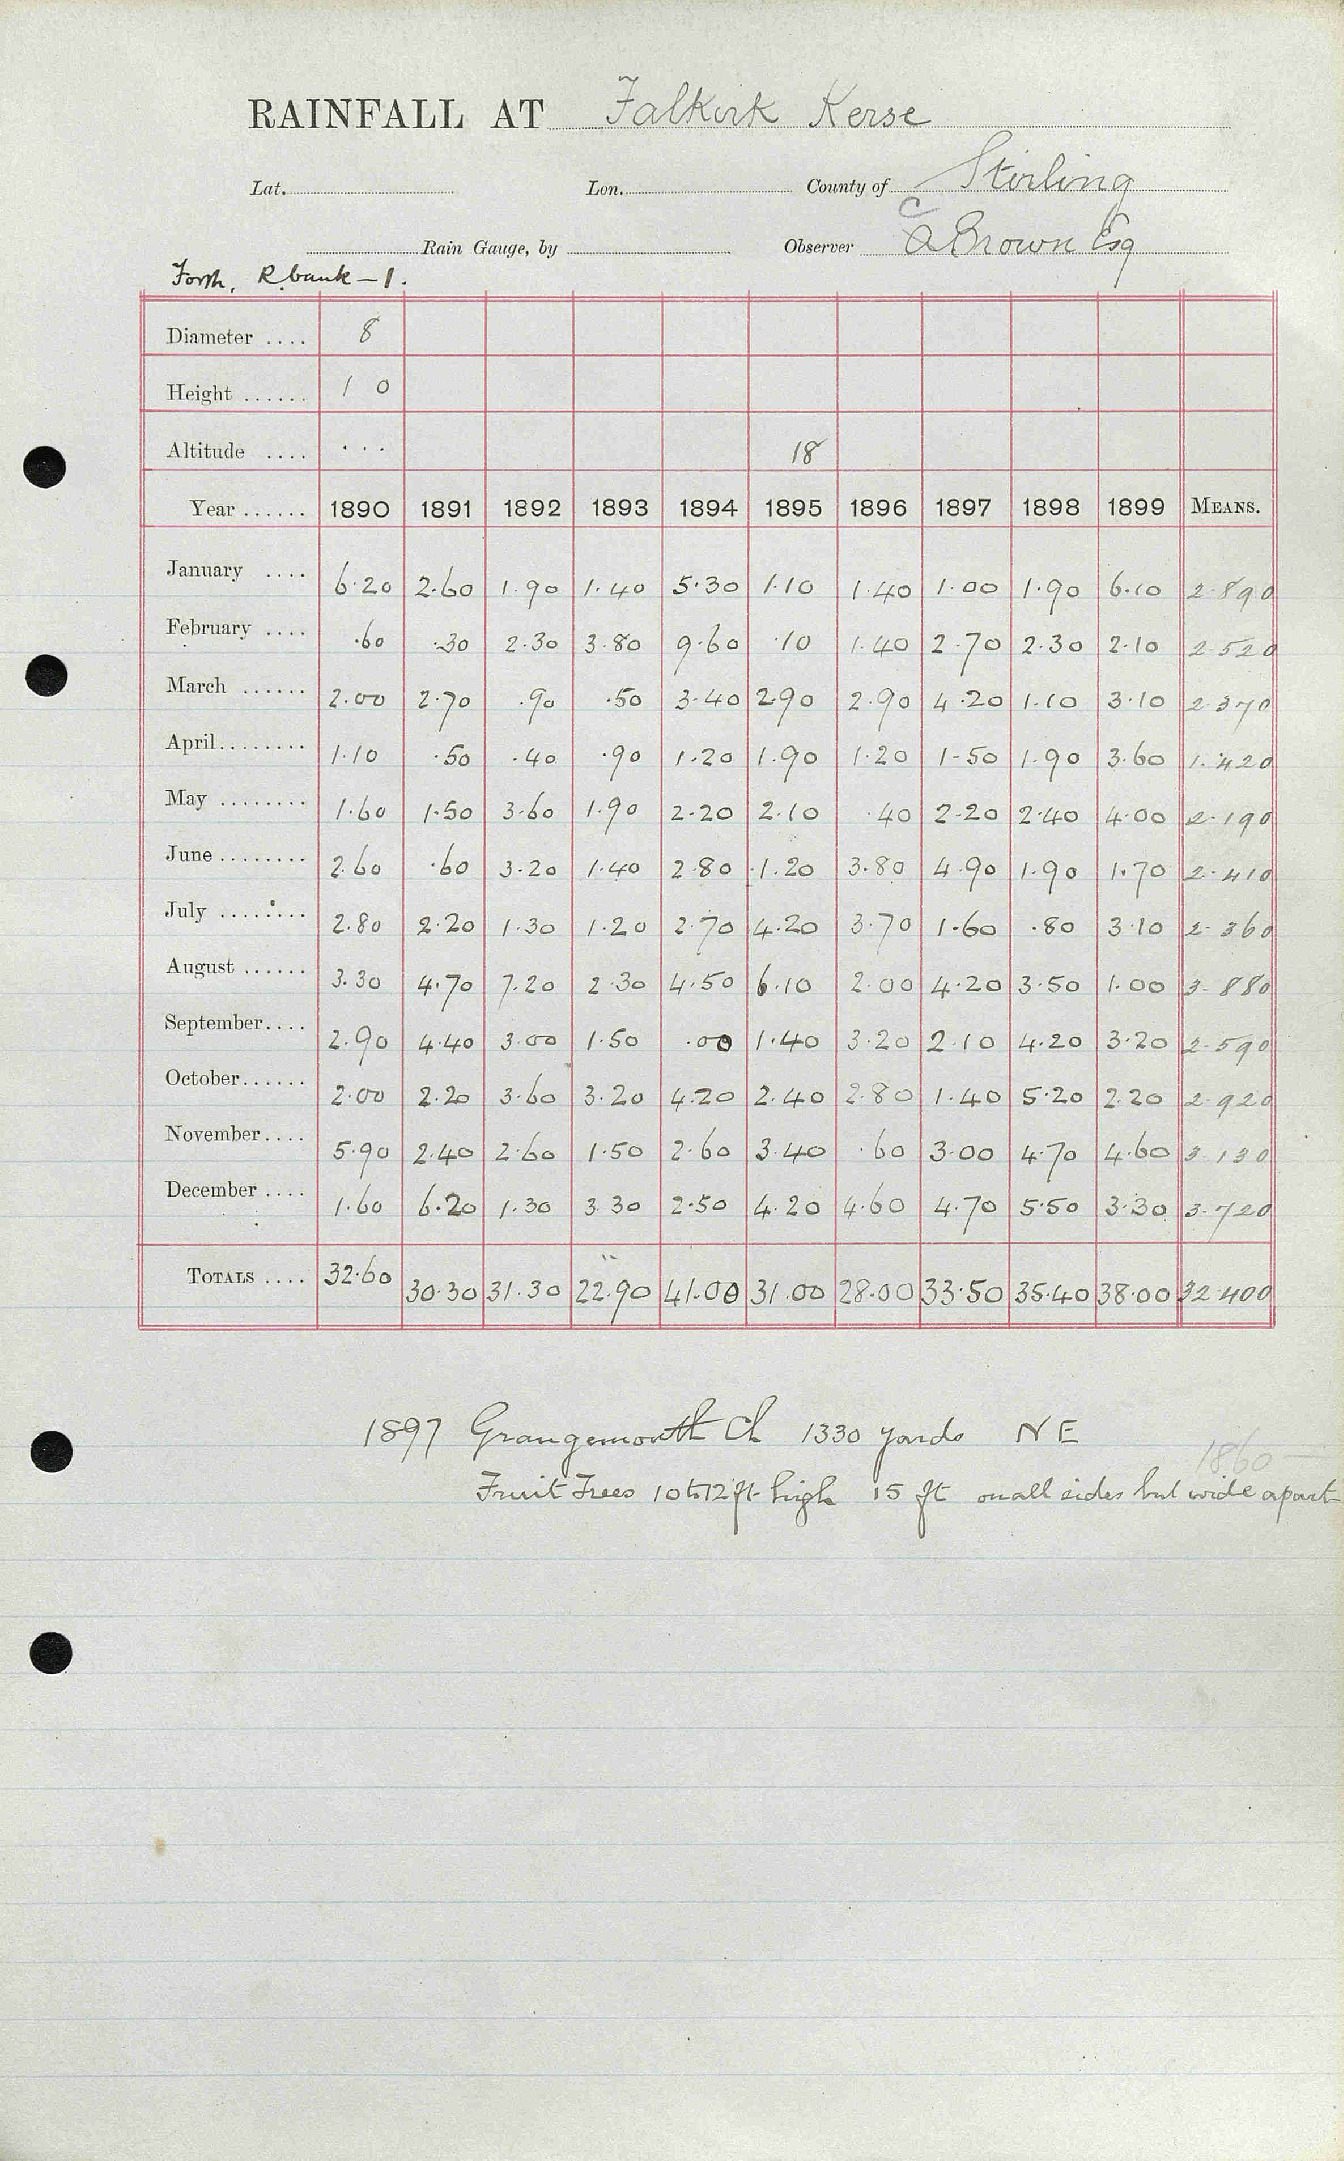 RAINFALL AT Falkirk Kerse
Lat. Lon. County of Stirling
Rain Gauge, by Observer Brown Esq
Forth, R. bank – 1.
Diameter .... 8
Height ...... 1 0
Altitude .... ... 18
Year ...... 1890 1891 1892 1893 1894 1895 1896 1897 1898 1899 MEANS.
January .... 6.20 2.60 1.90 1.40 5.30 1.10 1.40 1.00 1.90 6.10 2.890
February .... .60 .30 2.30 3.80 9.60 .10 1.40 2.70 2.30 2.10 2.520
March ...... 2.00 2.70 .90 .50 3.40 2.90 2.90 4.20 1.10 3.10 2.370
April ........ 1.10 .50 .40 .90 1.20 1.90 1.20 1-50 1.90 3.60 1.420
May ........ 1.60 1.50 3.60 1.90 2.20 2.10 .40 2-20 2.40 4.00 2.190
June ........ 2.60 .60 3.20 1.40 2.80 1.20 3.80 4.90 1.90 1.70 2.410
July ........ 2.80 2.20 1.30 1.20 2.70 4.20 3.70 1.60 .80 3.10 2.360
August ...... 3.30 4.70 7.20 2.30 4.50 6.10 2.00 4.20 3.50 1.00 3.880
September.... 2.90 4.40 3.00 1.50 .00 1.40 3.20 2.10 4.20 3.20 2.590
October ...... 2.00 2.20 3.60 3.20 4.20 2.40 2.80 1.40 5.20 2.20 2.920
November.... 5.90 2.40 2.60 1.50 2.60 3.40 .60 3.00 4.70 4.60 3.130
December .... 1.60 6.20 1.30 3.30 2.50 4.20 4.60 4.70 5.50 3.30 3.720
TOTALS .... 32.60 30.30 31.30 22.90 41.00 31.00 28.00 33.50 35.40 38.00 32.400
1897 Grangemouth Ch 1330 yards NE
1860 —
Fruit Trees 10 to 12 ft high 15 ft on all sides but wide apart